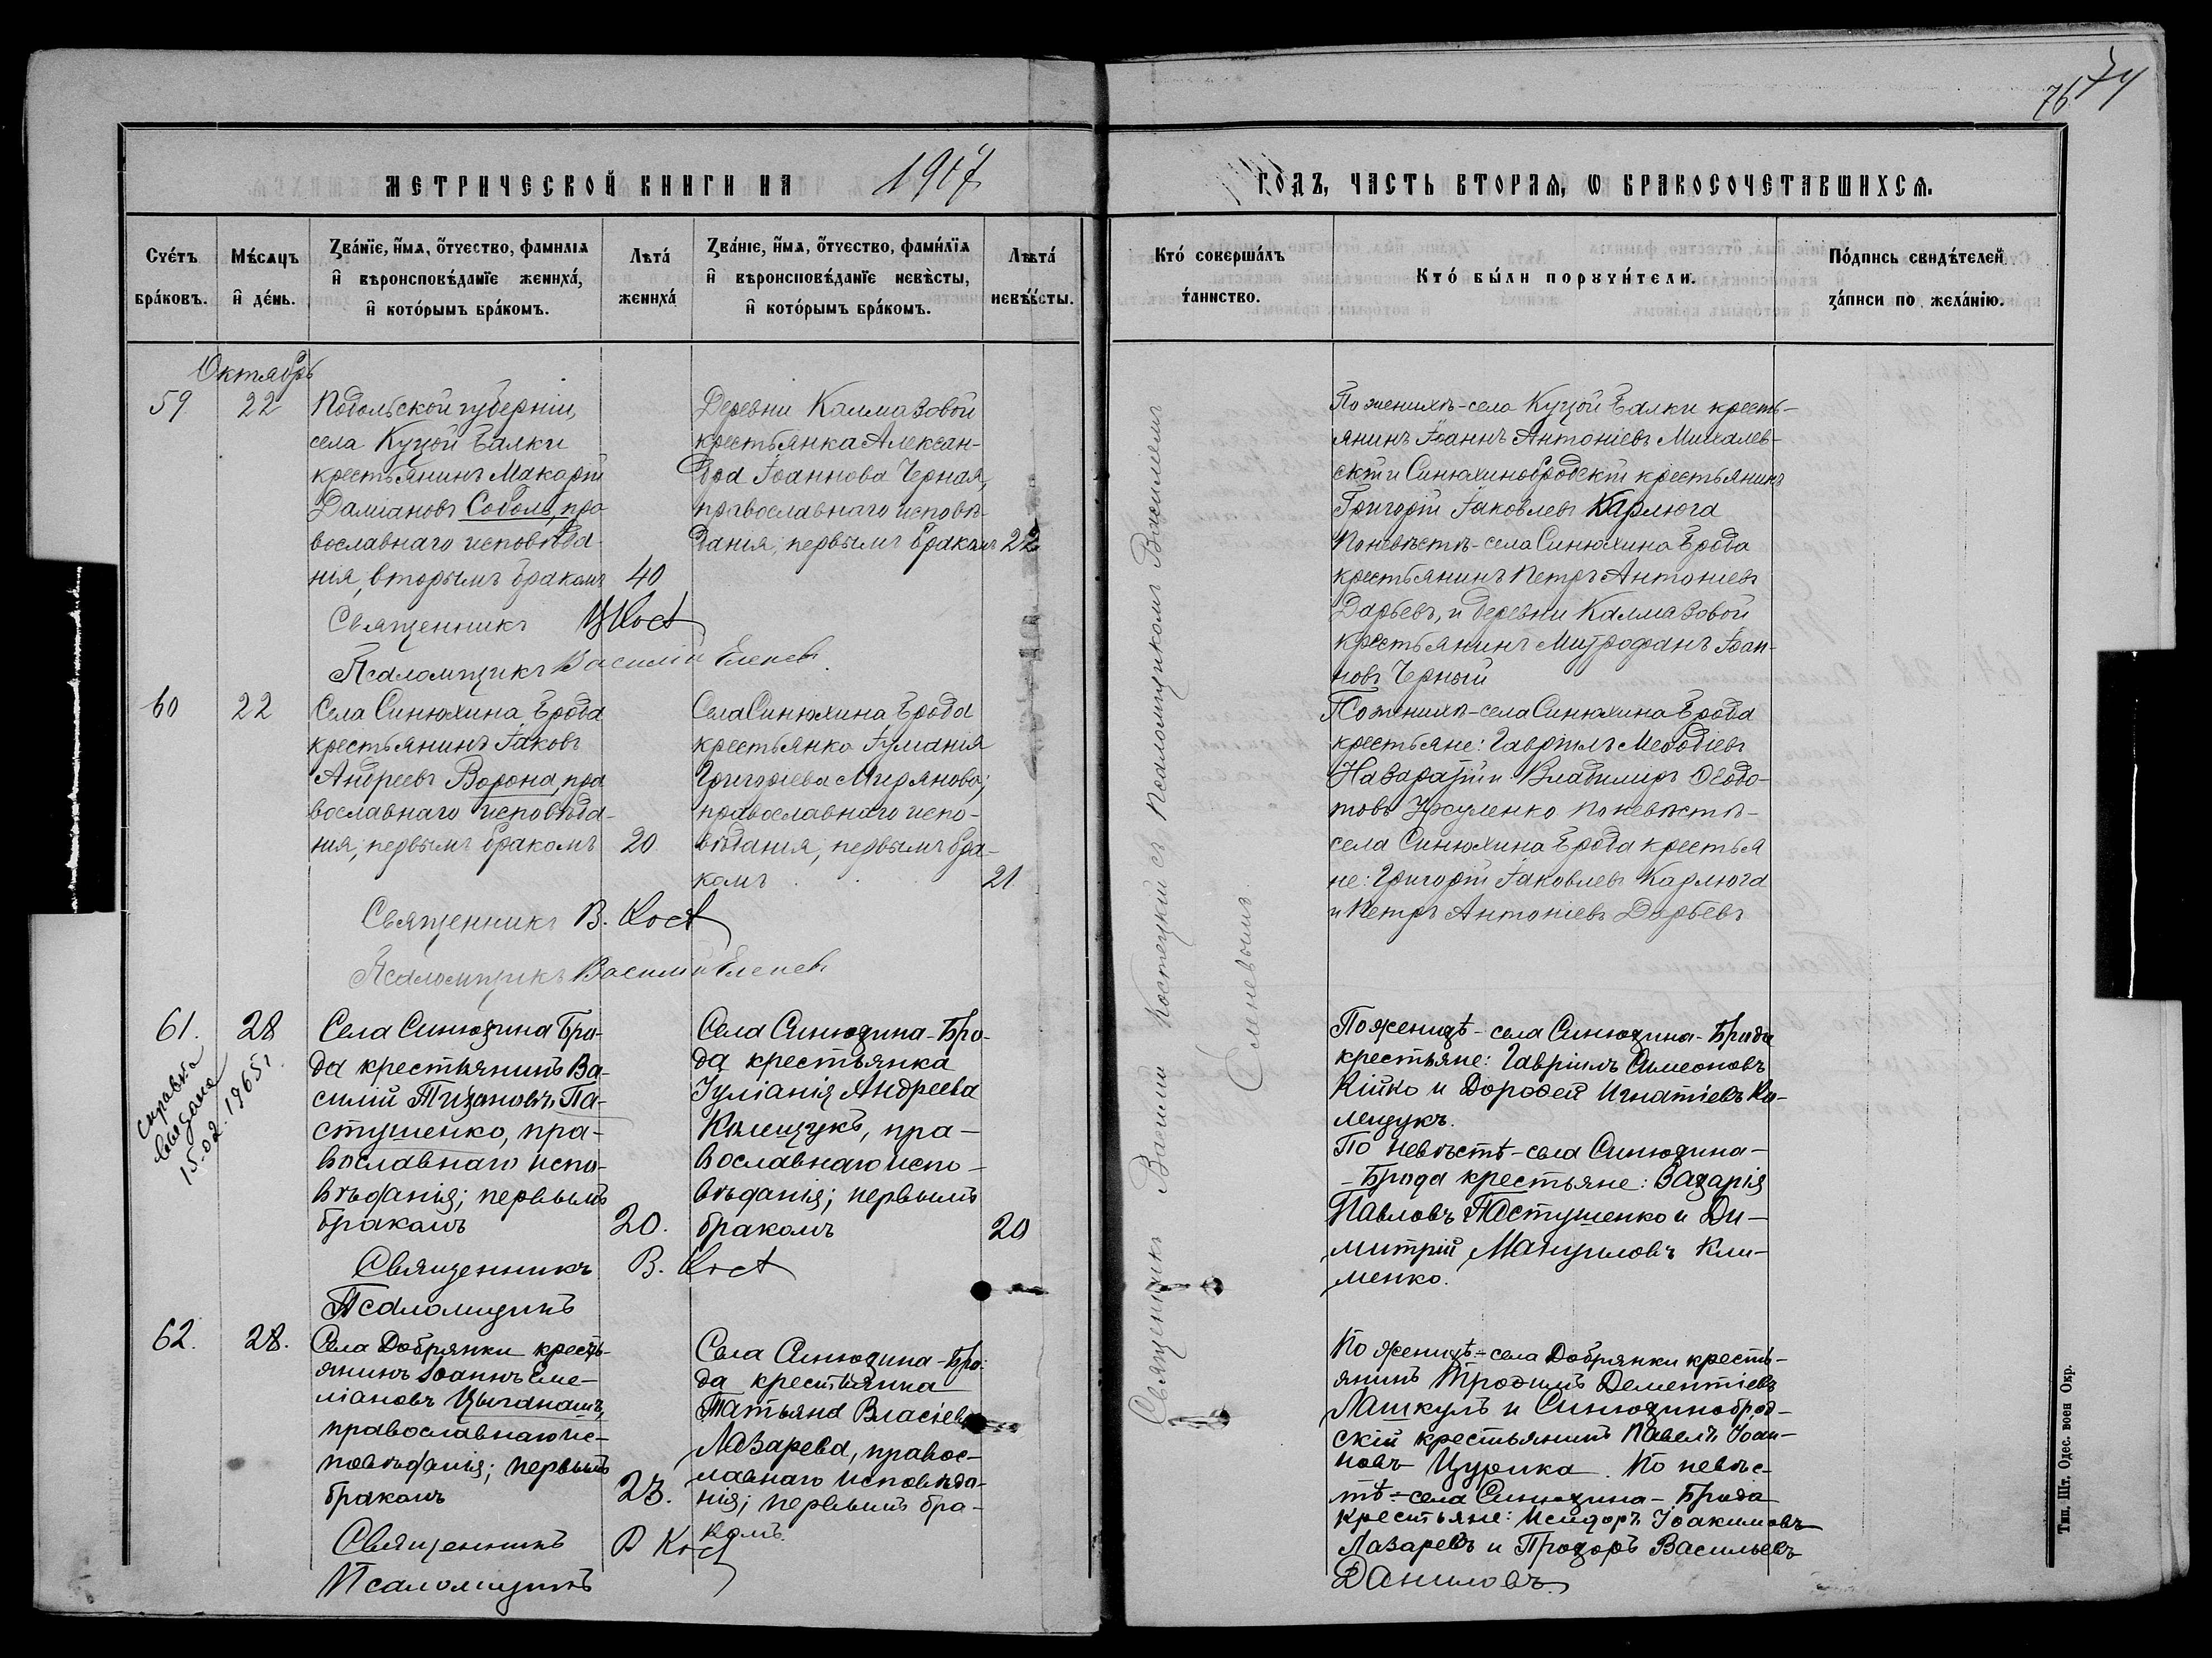 76 74
МЕТРИЧЕСКОЙ КНИГИ НА 1917
ГОДЪ, ЧАСТЬ ВТОРАЯ, Ѡ БРАКОСОЧЕТАВШИХСѦ.
Сче́тъ бра́ковъ.
Мѣ́сѧцъ и҆ де́нь.
Зва́нїе, и҆́мѧ, ѻ҆́тчество, фамилїѧ
и҆ вѣроисповѣ́данїе жениха́,
и҆ кото́рымъ бра́комъ.
Лѣта́ жениха́
Зва́нїе, и҆́мѧ, ѻ҆́тчество, фами́лїѧ
и҆ вѣроисповѣ́данїе невѣ́сты,
и҆ кото́рымъ бра́комъ.
Лѣта́ невѣ́сты.
Кто́ соверша́лъ
та́инство.
Кто́ бы́ли порꙋчи́тели.
По́дпись свидѣ́телей
за́писи по жела́нїю.
Октябрь
59 22
Подольской губерніи,
села Куцой Балки
крестьянинъ Макарій
Даміановъ Соболь, пра
вославнаго исповѣда-
нія, вторымъ бракомъ 40
Деревни Калмазовой
крестьянка Алексан-
дра Іоаннова Черная,
православнаго исповѣ-
данія, первымъ бракомъ 22
Священникъ В Кост
Псаломщикъ Василій Еленев
По женихѣ-села Куцой Балки кресть-
янинъ Іоаннъ Антоніевъ Михалев-
скій и Синюхинобродскій крестьянинъ
Григорій Іаковлевъ Карлюга
По невѣстѣ-села Синюхина Брода
крестьянинъ Петръ Антоніевъ
Дарьевъ, и деревни Калмазовой
крестьянинъ Митрофанъ Іоан-
новъ Черный
60 22
Села Синюхина Брода
крестьянинъ Іаковъ
Андреевъ Ворона, пра
вославнаго исповѣда-
нія, первымъ бракомъ 20
Села Синюхина Брода
крестьянка Іуліанія
Григоріева Мирянова;
православнаго испо-
вѣданія, первымъ бра-
комъ 21
Священникъ В. Кост
Псаломщикъ Василій Еленев
По женихѣ-села Синюхина Брода
крестьяне: Гавріилъ Меѳодіевъ
Назаратій и Владимиръ Ѳеодо-
товъ Ужуленко По невѣстѣ-
села Синюхина Брода крестья
не: Григорій Іаковлевъ Карлюга
и Петръ Антоніевъ Дарьевъ
61. 28
справка
выдана
15.02.1965 г.
Села Синюхина Бро-
да крестьянинъ Ва-
силій Тихановъ Па-
стушенко, пра-
вославнаго испо-
вѣданія; первымъ
бракомъ 20.
Села Синюхина-Бро-
да крестьянка
Іуліанія Андреева
Комщукъ, пра-
вославнаго испо-
вѣданія; первымъ
бракомъ 20
Священникъ В. Кост
Псаломщикъ
По женихѣ-села Синюхина-Брода
крестьяне: Гавріилъ Симеоновъ
Кійко и Дороѳей Игнатіевъ Ко-
мщукъ.
По невѣстѣ-села Синюхина-
-Брода крестьяне: Захарія
Павловъ Пастушенко и Ди-
митрій Мануиловъ Кли-
менко.
62. 28.
Села Добрянки кресть-
янинъ Іоаннъ Еме-
ліановъ Цыганашъ,
православнаго ис-
повѣданія; первымъ
бракомъ 23.
Села Синюхина-Бро-
да крестьянка
Татьяна Власіева
Лазарева, правос-
лавнаго исповѣда-
нія; первымъ бра-
комъ.
Священникъ В Кост
Псаломщикъ
По женихѣ-села Добрянки кресть-
янинъ Трофимъ Дементіевъ
Лашкулъ и Синюхиноброд-
скій крестьянинъ Павелъ Іоан-
новъ Цурика. По невѣс-
тѣ-села Синюхина-Брода
крестьяне: Исидоръ Іоакимовъ
Лазаревъ и Прохоръ Васильевъ
Даниловъ.
Священникъ Василій Костецкій съ Псаломщикомъ Василіемъ
Еленевымъ.
Тип. Шт. Одес. воен Окр.